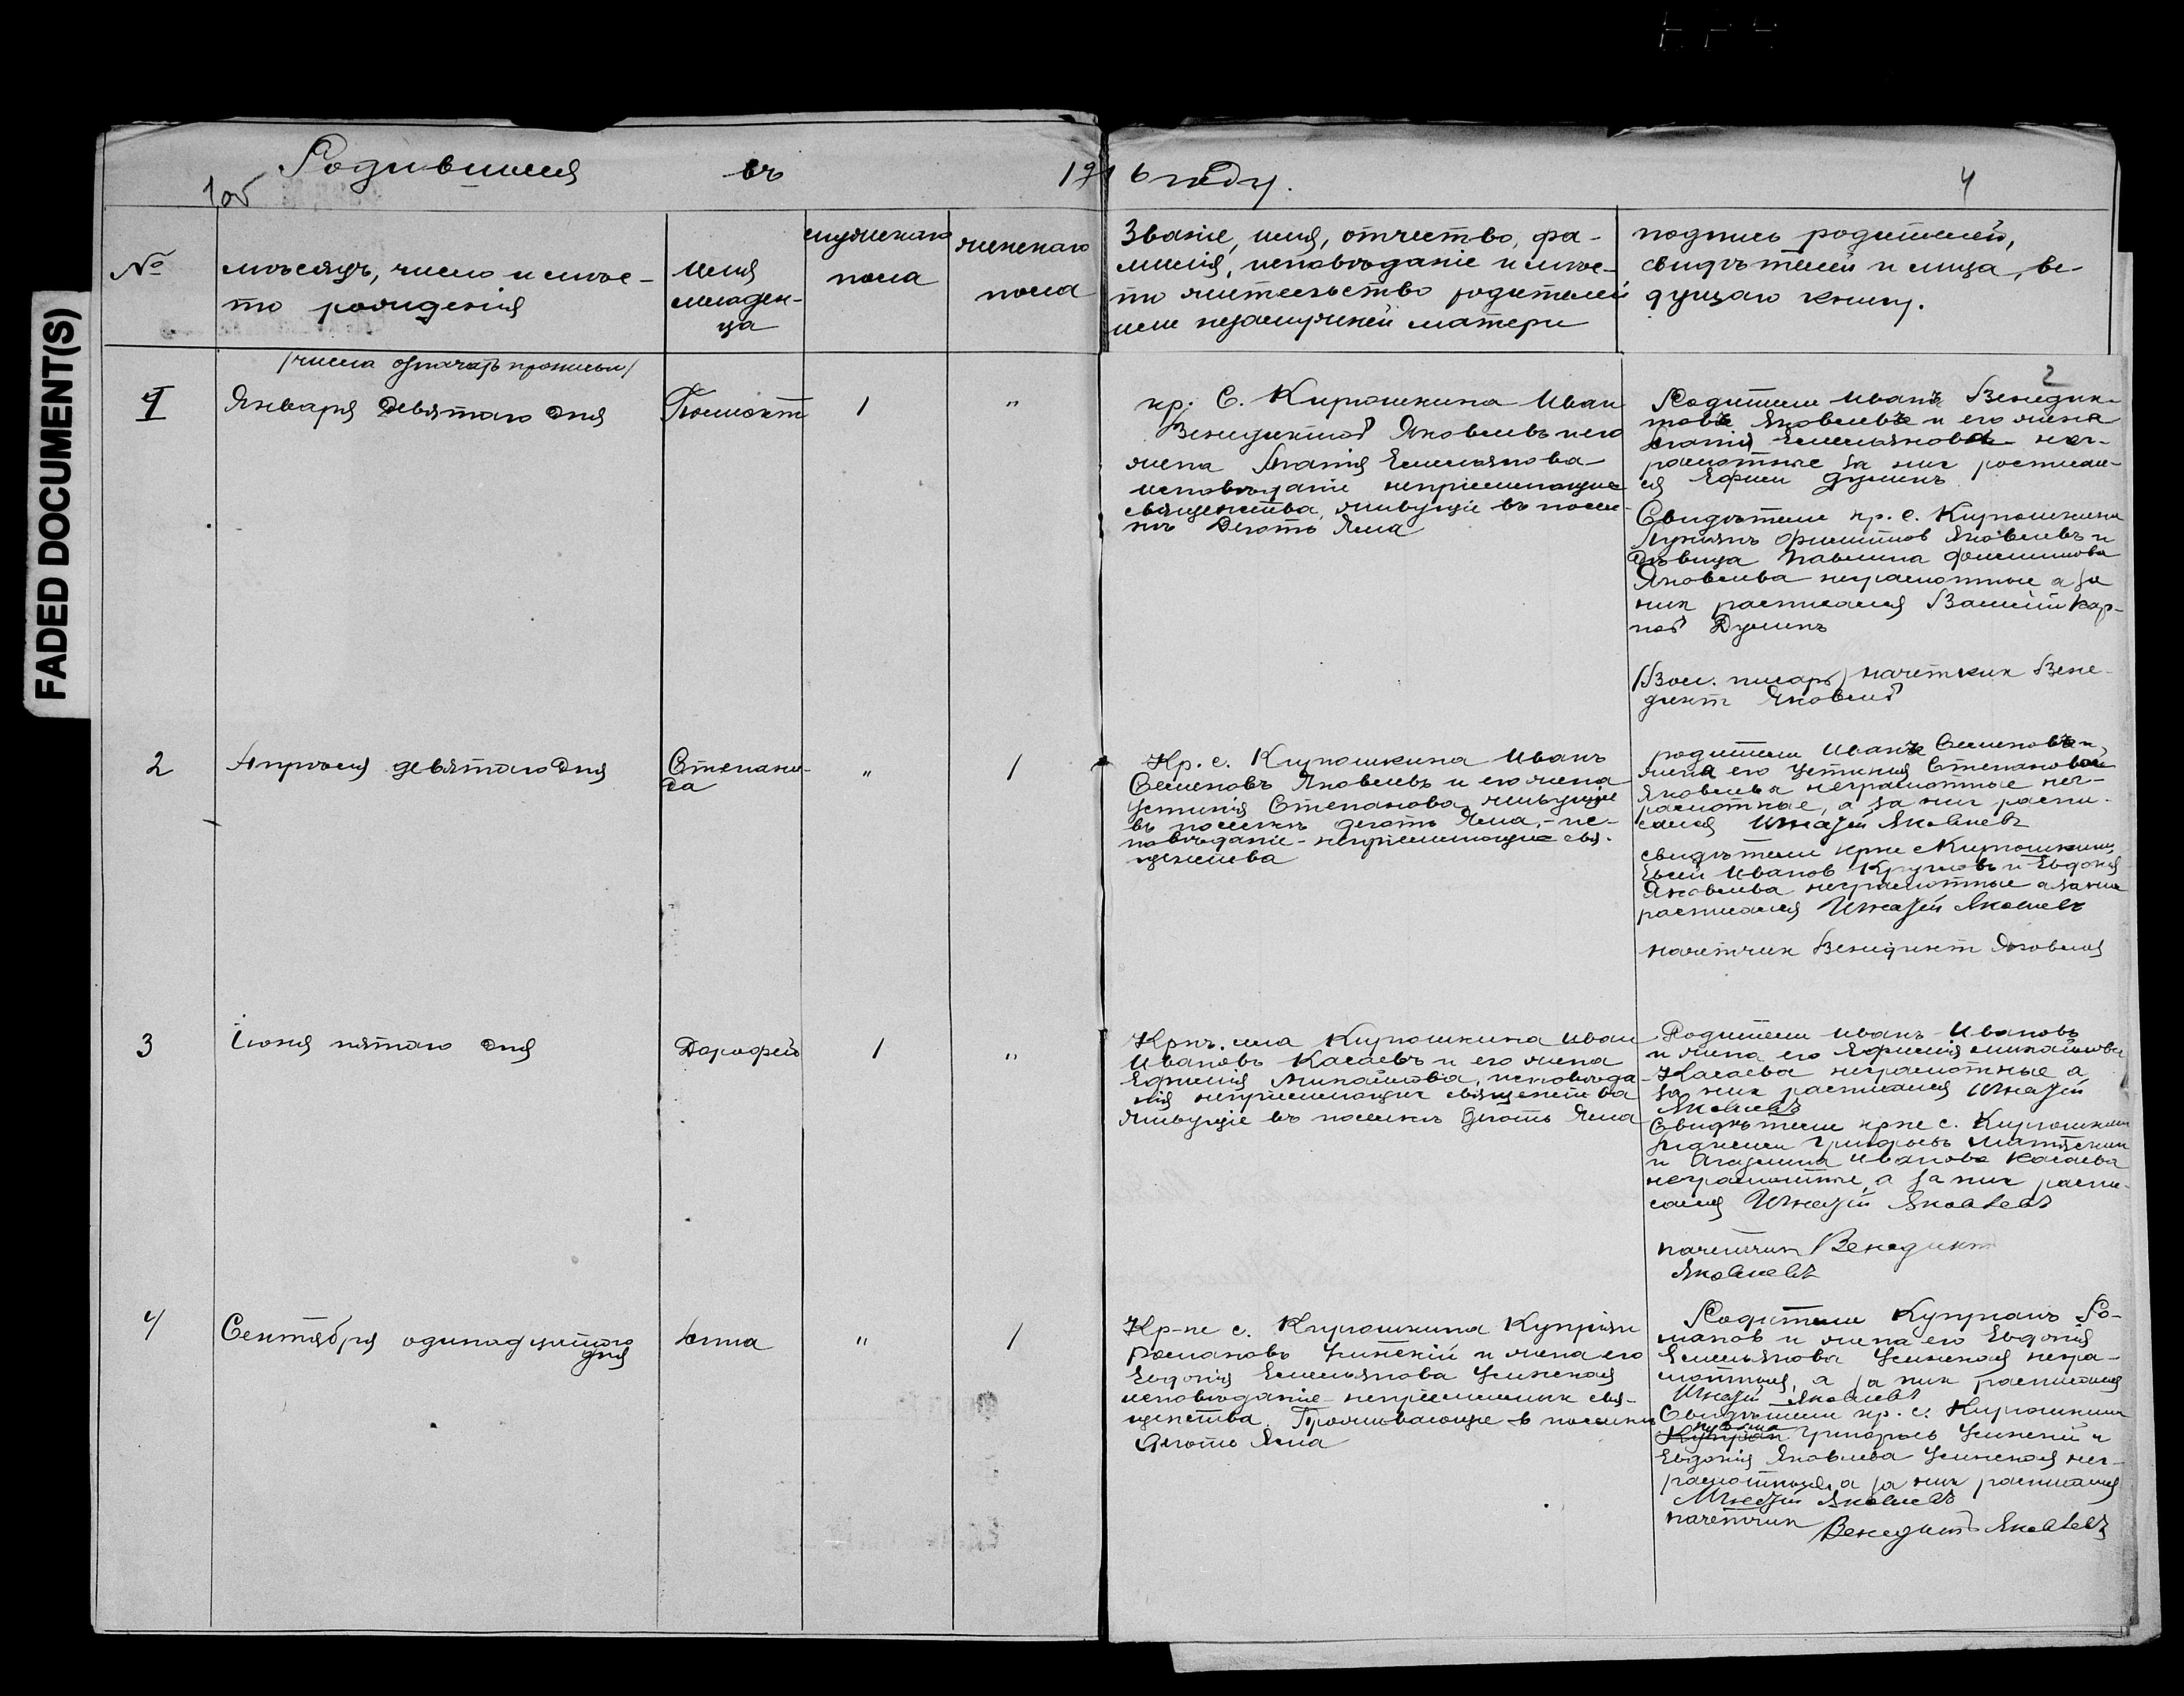 FADED DOCUMENT(S)
Родившихся въ 1916 году.
4
№
мѣсяцъ, число и мѣс-
то рожденія
имя
младен-
ца
мужскаго
пола
женскаго
пола
Званіе, имя, отчество, фа-
милія, исповѣданіе и мѣс-
то жительство родителей
или незамужней матери
подпись родителей,
свидѣтелей и лица, ве-
дущаго книгу.
/числа означать прописью/
1
Января девятаго дня
1
"
кр. С. Кирюшкина Иван
Венедиктов Яковлевъ и его
жена Агапія Емельянова
исповѣданіе непріемлющие
священства, живущіе въ посел-
кѣ Деготь Яма
2
Родители Иванъ Венедик-
товъ Яковлевъ и его жена
Агапія Емельянова нег-
рамотные за них росписал-
ся Ефим Думинъ
Свидѣтели кр. с. Кирюшкина
Лукьянъ Яковлевъ и
Дѣвица
Яковлева неграмотные а за
них расписался Василій Кар-
пов Думинъ
/Вол. писарь/ начетчик Вене-
дикт Яковлев
2
Апрѣля девятаго дня
Степани-
да
"
1
Кр. с. Кирюшкина Иванъ
Семеновъ Яковлевъ и его жена
Устинія Степанова живущіе
въ поселкѣ Деготь Яма, - ис-
повѣданіе - непріемлющие свя-
щенства
родители Иванъ Семеновъ и
жена его Устинія Степанова
Яковлевы неграмотные нег-
рамотные, а за них распи-
сался Яковлевъ
свидѣтели крпе с Кирюшкина
Евсей Иванов Кругловъ и Евдокія
Яковлева неграмотные а за них
расписался Яковлевъ
начетчик Венедикт Яковлев
3
Іюня пятаго дня
Дорофей
1
"
Крнъ. села Кирюшкина Иван
Ивановъ Касаевъ и его жена
Ефимія Михайлова, исповѣда-
нія непріемлющих священства
живущіе въ поселкѣ Деготь Яма
Родители Иванъ Ивановъ
и жена его Ефимія Михайлова
Касаева неграмотные а
за них расписался
Яковлевъ
Свидѣтели крпе с. Кирюшкина
Григорьевъ
и Иванова Касаева
неграмотные, а за них распи-
сался Яковлев
начетчик Венедикт
Яковлевъ
4
Сентября одинадцатаго
дня
Анна
"
1
Кр-не с. Кирюшкина Купріян
Романовъ Усинскій и жена его
Евдокія Емельянова Усинская
исповѣданіе непріемлющих свя-
щенства. Проживающие в поселкѣ
Деготь Яма
Родители Купріанъ Ро-
манов и жена его Евдокія
Емельянова Усинская негра-
мотныя, а за них расписался
Яковлев
Свидѣтели кр. с. Кирюшкина
Григорьевъ Усинскій и
Евдокія Яковлева Усинская нег-
рамотныя, а за них расписался
Яковлевъ
начетчик
Венедиктъ Яковлевъ